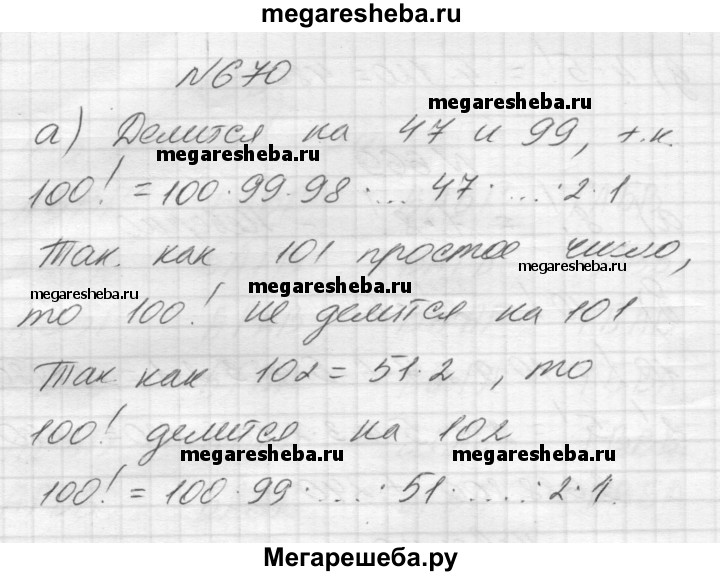 megaresheba.ru
№670
megaresheba.ru
а) Делится на 47 и 99, т.к.
megaresheba.ru
100! = 100·99·98·...47·...·2·1
Так как 101 простое число,
megaresheba.ru
megaresheba.ru
megaresheba.ru
то 100! не делится на 101
Так как 102 = 51·2, то
100! делится на 102
megaresheba.ru
megaresheba.ru
100! = 100·99·...·51·...·2·1.
Мегарешеба.ру